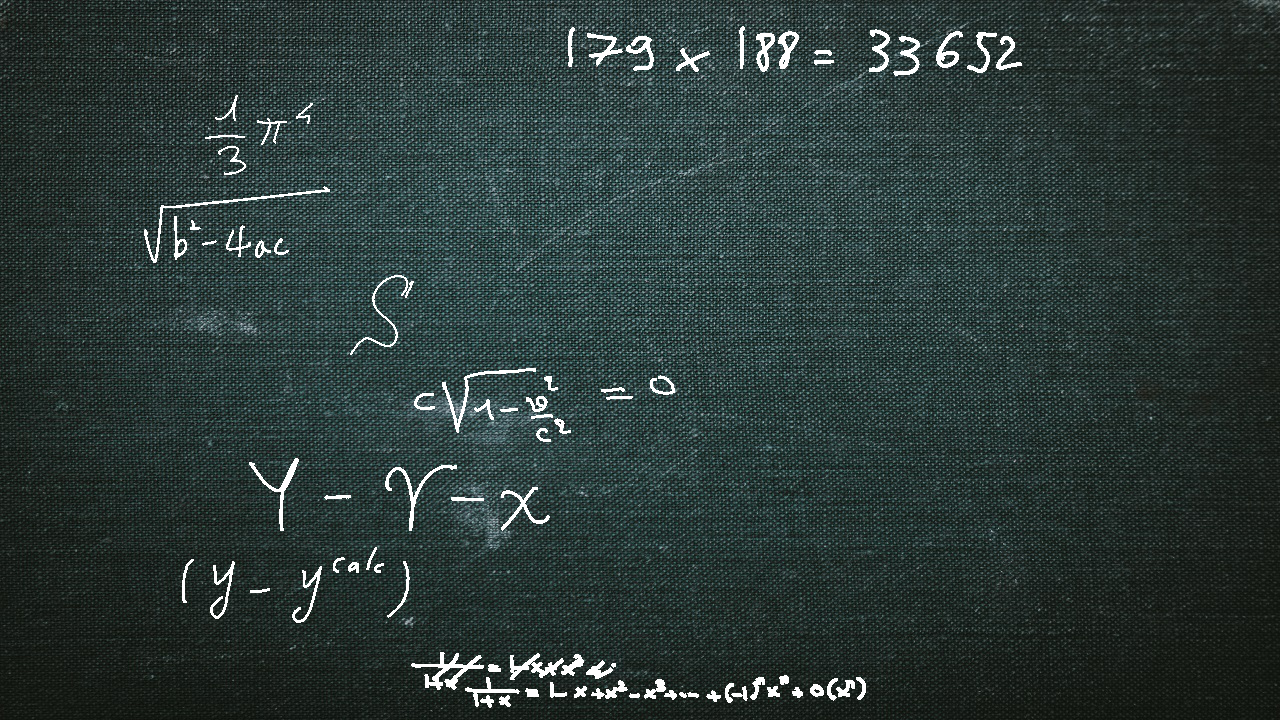 179 x 188 = 33652
1/3 π⁴
√(b² - 4ac)
S
c√(1 - v²/c²) = 0
Y - γ - x
(y - y^calc)
1/(1+x) = 1 - x + x² - x³ + ... + (-1)ⁿ xⁿ + o(xⁿ)